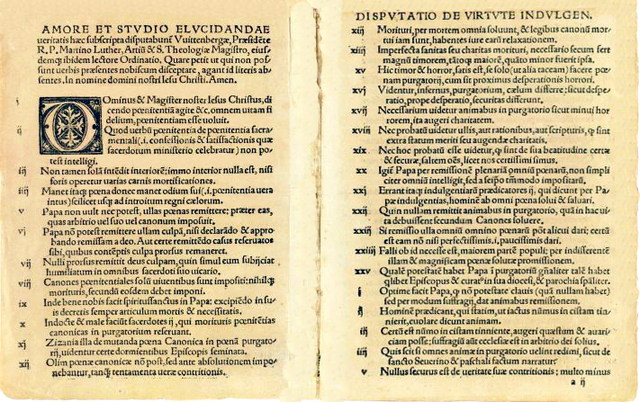 AMORE ET STVDIO ELVCIDANDAE
ueritatis hæc subscripta disputabunt̄ Vuitenbergæ, Præsidēte
R. P. Martino Luther, Artiū & S. Theologiæ Magistro, eius-
demq; ibidem lectore Ordinatio. Quare petit ut qui non pos-
sunt uerbis præsentes nobiscum disceptare, agant id literis ab-
sentes. In nomine domini nostri Iesu Christi. Amen.
i Dominus & Magister noster Iesus Christus, di-
cendo pœnitētiā agite &c, omnem uitam fi
delium, pœnitentiam esse uoluit.
ij Quod uerbū pœnitentia de pœnitentia sacra-
mentali (.i. confessionis & satisfactionis quæ
sacerdotum ministerio celebratur) non po-
test intelligi.
iij Non tamen solā intēdit interiorē: immo interior nulla est, nisi
foris operetur uarias carnis mortificationes.
iiij Manet itaq; pœna donec manet odium sui (.i. pœnitentia uera
intus) scilicet usq; ad introitum regni cælorum.
v Papa non uult nec potest, ullas pœnas remittere: præter eas,
quas arbitrio uel suo uel canonum imposuit.
vi Papa nō potest remittere ullam culpā, nisi declarādo & appro-
bando remissam a deo. Aut certe remittēdo casus reseruatos
sibi, quibus contēptis culpa prorsus remaneret.
vij Nulli prorsus remittit deus culpam, quin simul eum subijciat
humiliatum in omnibus sacerdoti suo uicario.
viij Canones pœnitentiales solū uiuentibus sunt impositi: nihilq;
morituris, secundū eosdem debet imponi.
ix Inde bene nobis facit spiritussanctus in Papa: excipiēdo in su-
is decretis semper articulum mortis & necessitatis.
x Indocte & male faciūt sacerdotes ij, qui morituris pœnitētias
canonicas in purgatorium reseruant.
xj Zizania illa de mutanda pœna Canonica in pœnā purgato-
rij, uidentur certe dormientibus Episcopis seminata.
xij Olim pœnæ canonicæ nō post, sed ante absolutionem impo-
nebantur, tanq̄ tentamenta ueræ contritionis.
DISPVTATIO DE VIRTVTE INDVLGEN.
xiij Morituri, per mortem omnia soluunt, & legibus canonū mor-
tui iam sunt, habentes iure earū relaxationem.
xiiij Imperfecta sanitas seu charitas morituri, necessario secum fert
magnū timorem, tātoq; maiorē, quāto minor fuerit ipsa.
xv Hic timor & horror, satis est, se solo (ut alia taceam) facere pœ-
nam purgatorij, cum sit proximus desperationis horrori.
xvj Videntur, infernus, purgatorium, cælum differre: sicut despe-
ratio, prope desperatio, securitas differunt.
xvij Necessarium uidetur animabus in purgatorio sicut minui hor
rorem, ita augeri charitatem.
xviij Nec probatū uidetur ullis, aut rationibus, aut scripturis, q̄ sint
extra statum meriti seu augendæ charitatis.
xix Nec hoc probatū esse uidetur, q̄ sint de sua beatitudine certæ
& securæ, saltem oēs, licet nos certissimi simus.
xx Igit̄ Papa per remissionē plenariā omniū pœnarū, non simpli
citer omniū intelligit, sed a seipso tātūmodo impositarū.
xxj Errant itaq; indulgentiarū prædicatores ij, qui dicunt per Pa-
pæ indulgentias, hominē ab omni pœna solui & saluari.
xxij Quin nullam remittit animabus in purgatorio, quā in hac ui-
ta debuissent secundum Canones soluere.
xxiij Si remissio ulla omniū omnino pœnarū pōt alicui dari: certū
est eam nō nisi perfectissimis, i. paucissimis dari.
xxiiij Falli ob id necesse est, maiorem partē populi: per indifferentē
illam & magnificam pœnæ solutæ promissionem.
xxv Qualē potestatē habet Papa ī purgatoriū gn̄aliter, talē habet
quilibet Episcopus & curat̄ in sua diocesi, & parochia spāliter.
i Optime facit Papa, q̄ nō potestate clauis (quā nullam habet)
sed per modum suffragij, dat animabus remissionem.
ij Hominē prædicant, qui statim, ut iactus nūmus in cistam tin-
nierit, euolare dicunt animam.
iij Certū est nūmo in cistam tinniente, augeri quæstum & auari-
ciam posse: suffragiū aūt ecclesiæ est in arbitrio dei solius.
iiij Quis scit si omnes animæ in purgatorio uelint redimi, sicut de
sancto Seuerino & paschali factum narratur.
v Nullus securus est de ueritate suæ contritionis: multo minus
a ij